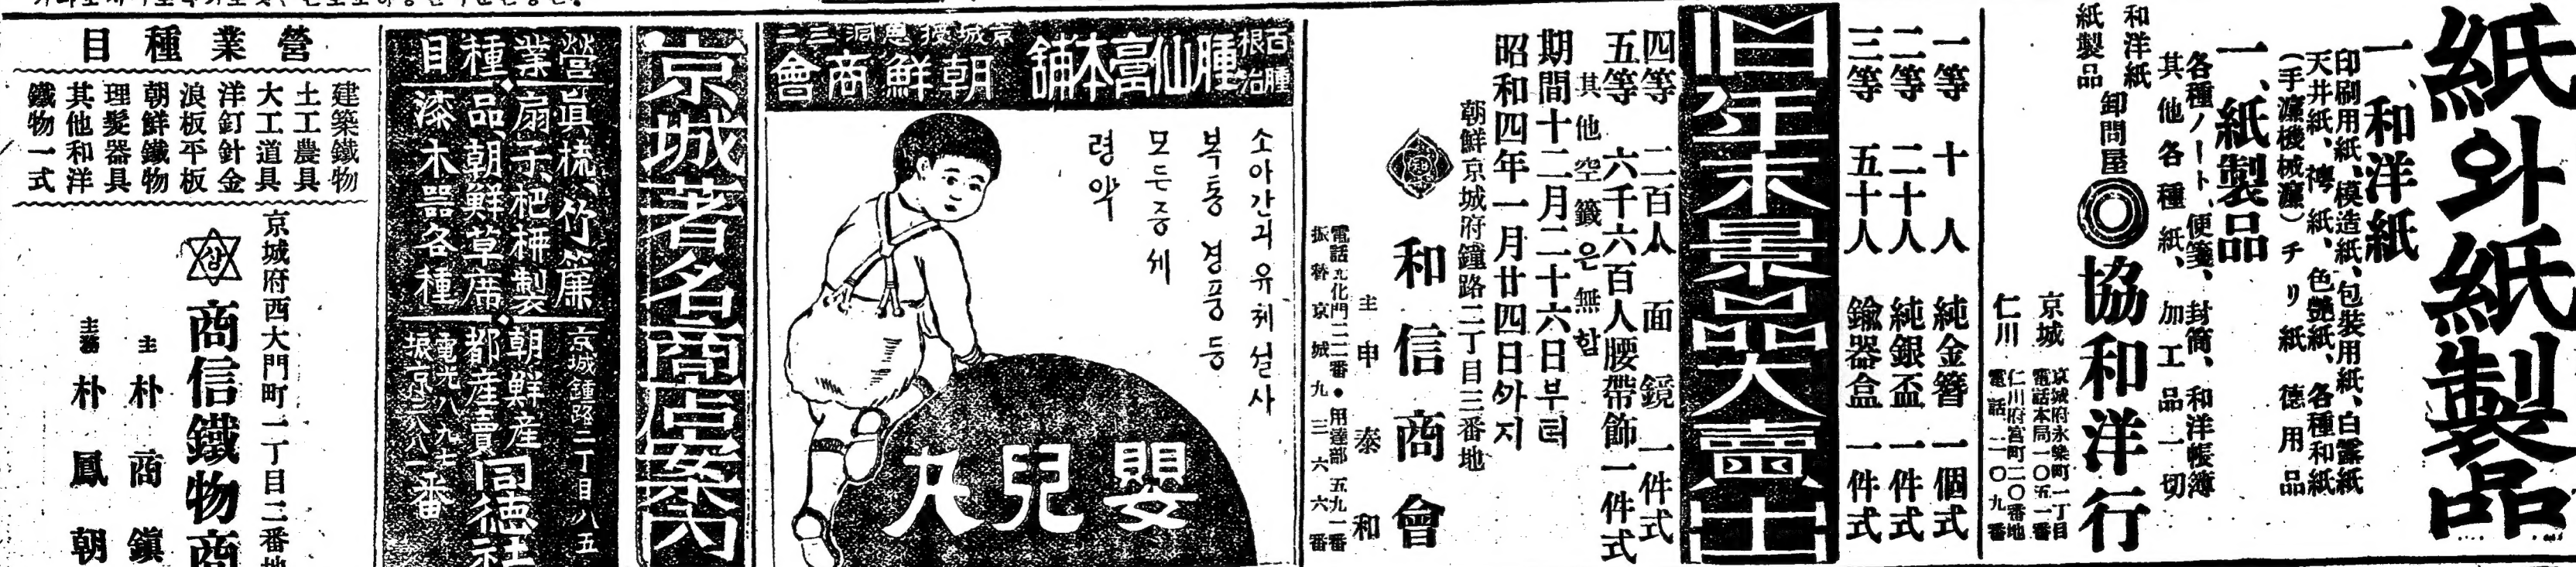 紙와紙製品
一、和洋紙
印刷用紙、模造紙、包裝用紙、白露紙
天井紙、襷紙、色艶紙、各種和紙
(手漉機械漉)チリ紙 德用品
一、紙製品
各種ノート、便箋、封筒、和洋帳簿
其他各種紙、加工品一切
和洋紙
紙製品
卸問屋
協和洋行
京城
京城府永樂町一丁目
電話本局一〇五一番
仁川
仁川府宮町二〇番地
電話一〇九番
一等 十人 純金簪 一個式
二等 二十人 純銀盃 一件式
三等 五十人 鍮器盒 一件式
旧年末景品大賣出
四等 二百人 面鏡 一件式
五等 六千六百人 腰帶飾 一件式
其他空籤은無함
期間十二月二十六日부터
昭和四年一月廿四日外지
朝鮮京城府鐘路二丁目三番地
和信商會
主 申泰和
電話光化門二二一番・用達部五九一番
振替京城九三六六番
百腫
根治
腫仙膏本舖
朝鮮商會
소아간긔유톄설사
복통경풍등
모든증세
령약
嬰兒丸
京城著名商店案內
營業種目
眞梳、竹簾
扇子、杷柄製
品、朝鮮草席
漆木器各種
京城鍾路二丁目八五
朝鮮産
都産賣
同德社
電光八九七
振京三八八一番
營業種目
建築鐵物
土工農具
大工道具
洋釘針金
浪板平板
朝鮮鐵物
理髮器具
其他和洋
鐵物一式
京城府西大門町一丁目二番地
상
商信鐵物商
主 朴商鎭
主務 朴鳳朝